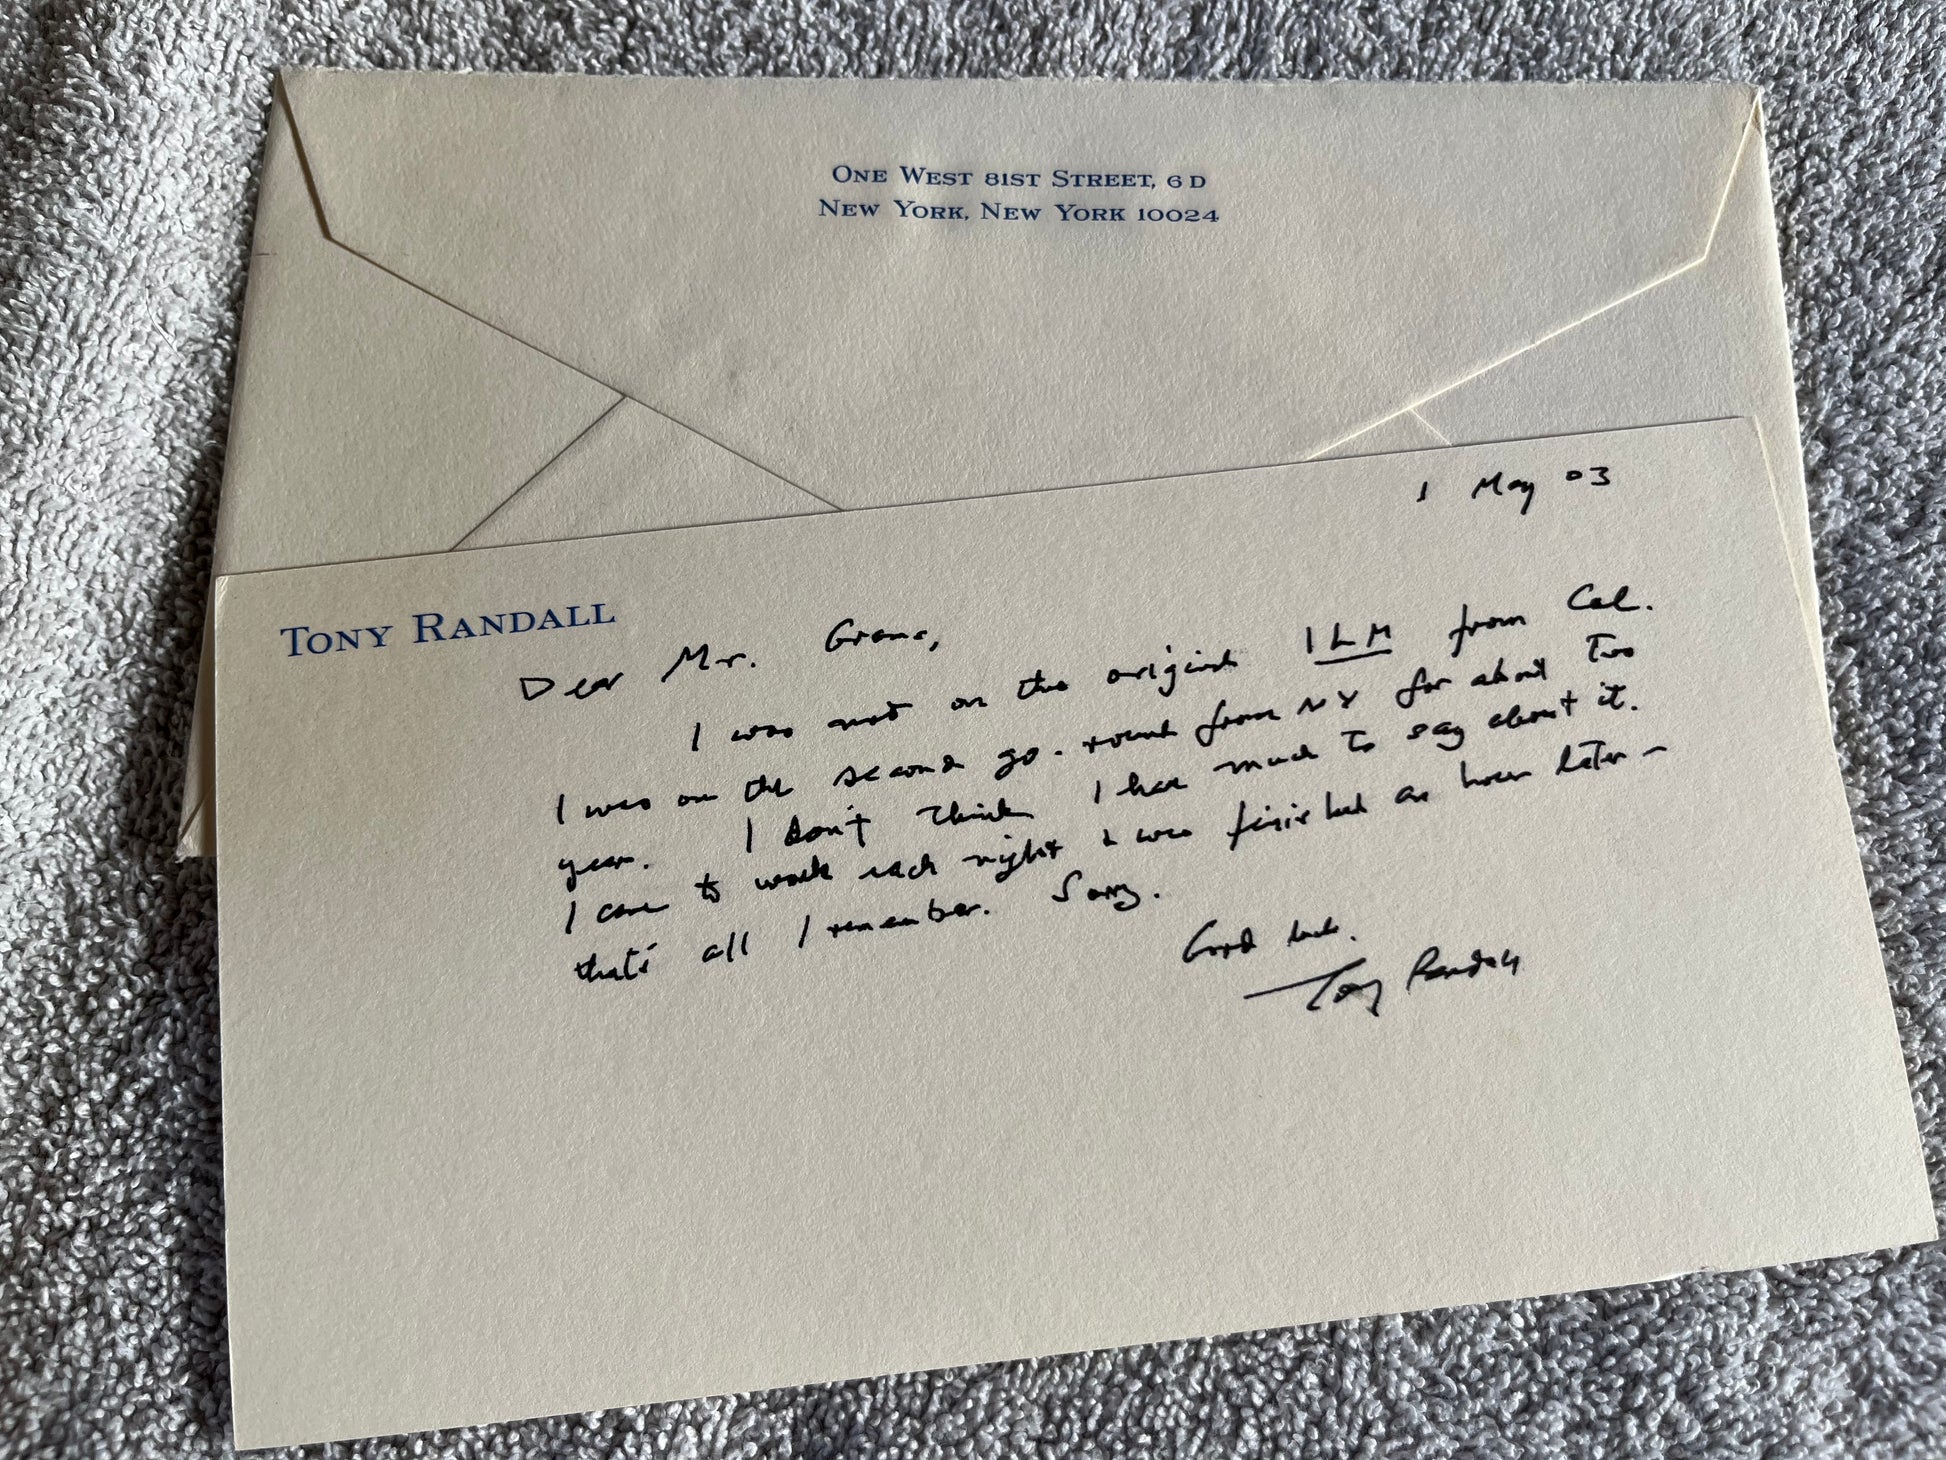 ONE WEST 81ST STREET, 6D
NEW YORK, NEW YORK 10024
1 May 03
TONY RANDALL
Dear Mr. Grams,
I was not on the original ILM from Cal.
I was on the second go-round from NY for about two
year. I don't think I have much to say about it.
I came to work each night & was finished an hour later –
that's all I remember. Sorry.
Good luck.
Tony Randall